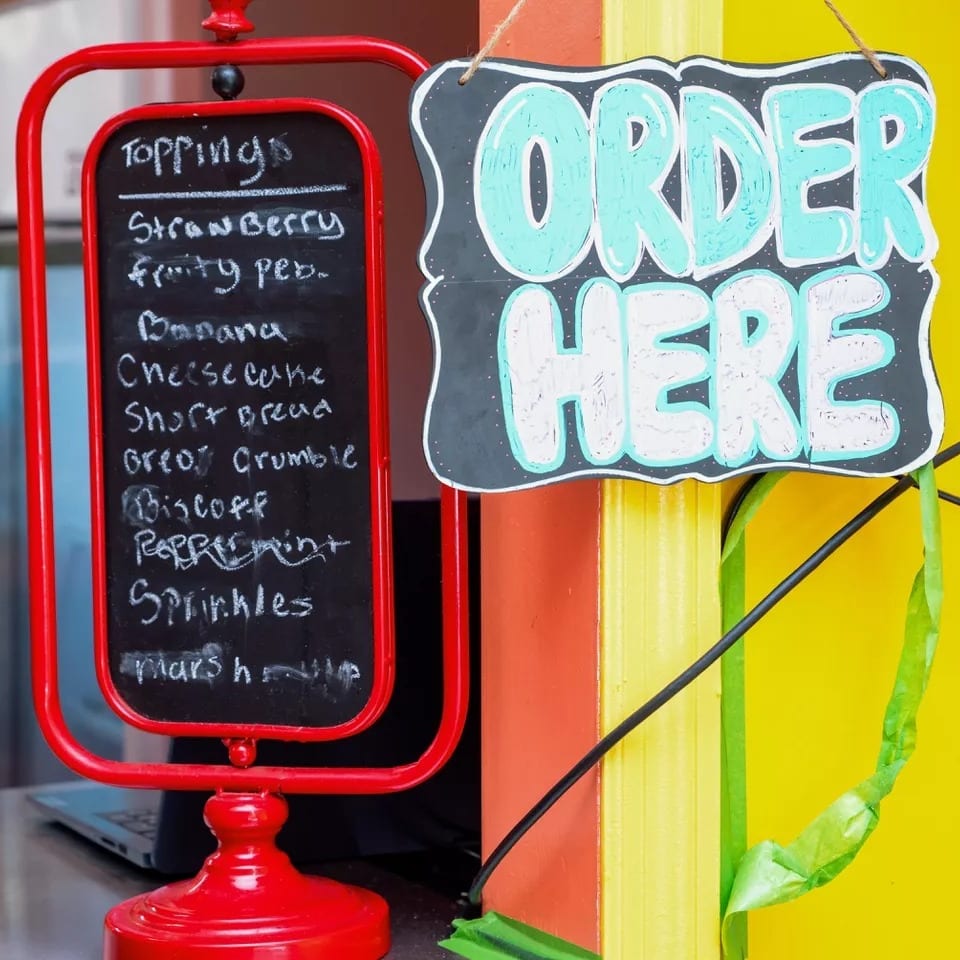 Toppings
Strawberry
fruity peb.
Banana
Cheesecake
Short Bread
oreo crumble
Biscoff
Peppermint
Sprinkles
marsh
ORDER
HERE